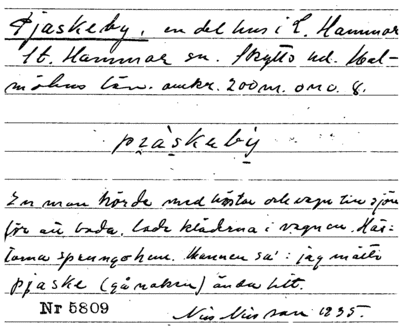 Pjaskeby, en del hus i L. Hammar
St. Hammar sn. Skytts hd. Mal-
möhus län. omkr. 200 m. om o. 8.
pjáskebý
En man körde med hästar och vagn till sjön
för att bada. Lade kläderna i vagnen. Häs-
tarna sprungo hem. Mannen sa': jag måtte
pjaske (gå naken) ända hit.
Nr 5809
Nils Nilsson 1935.